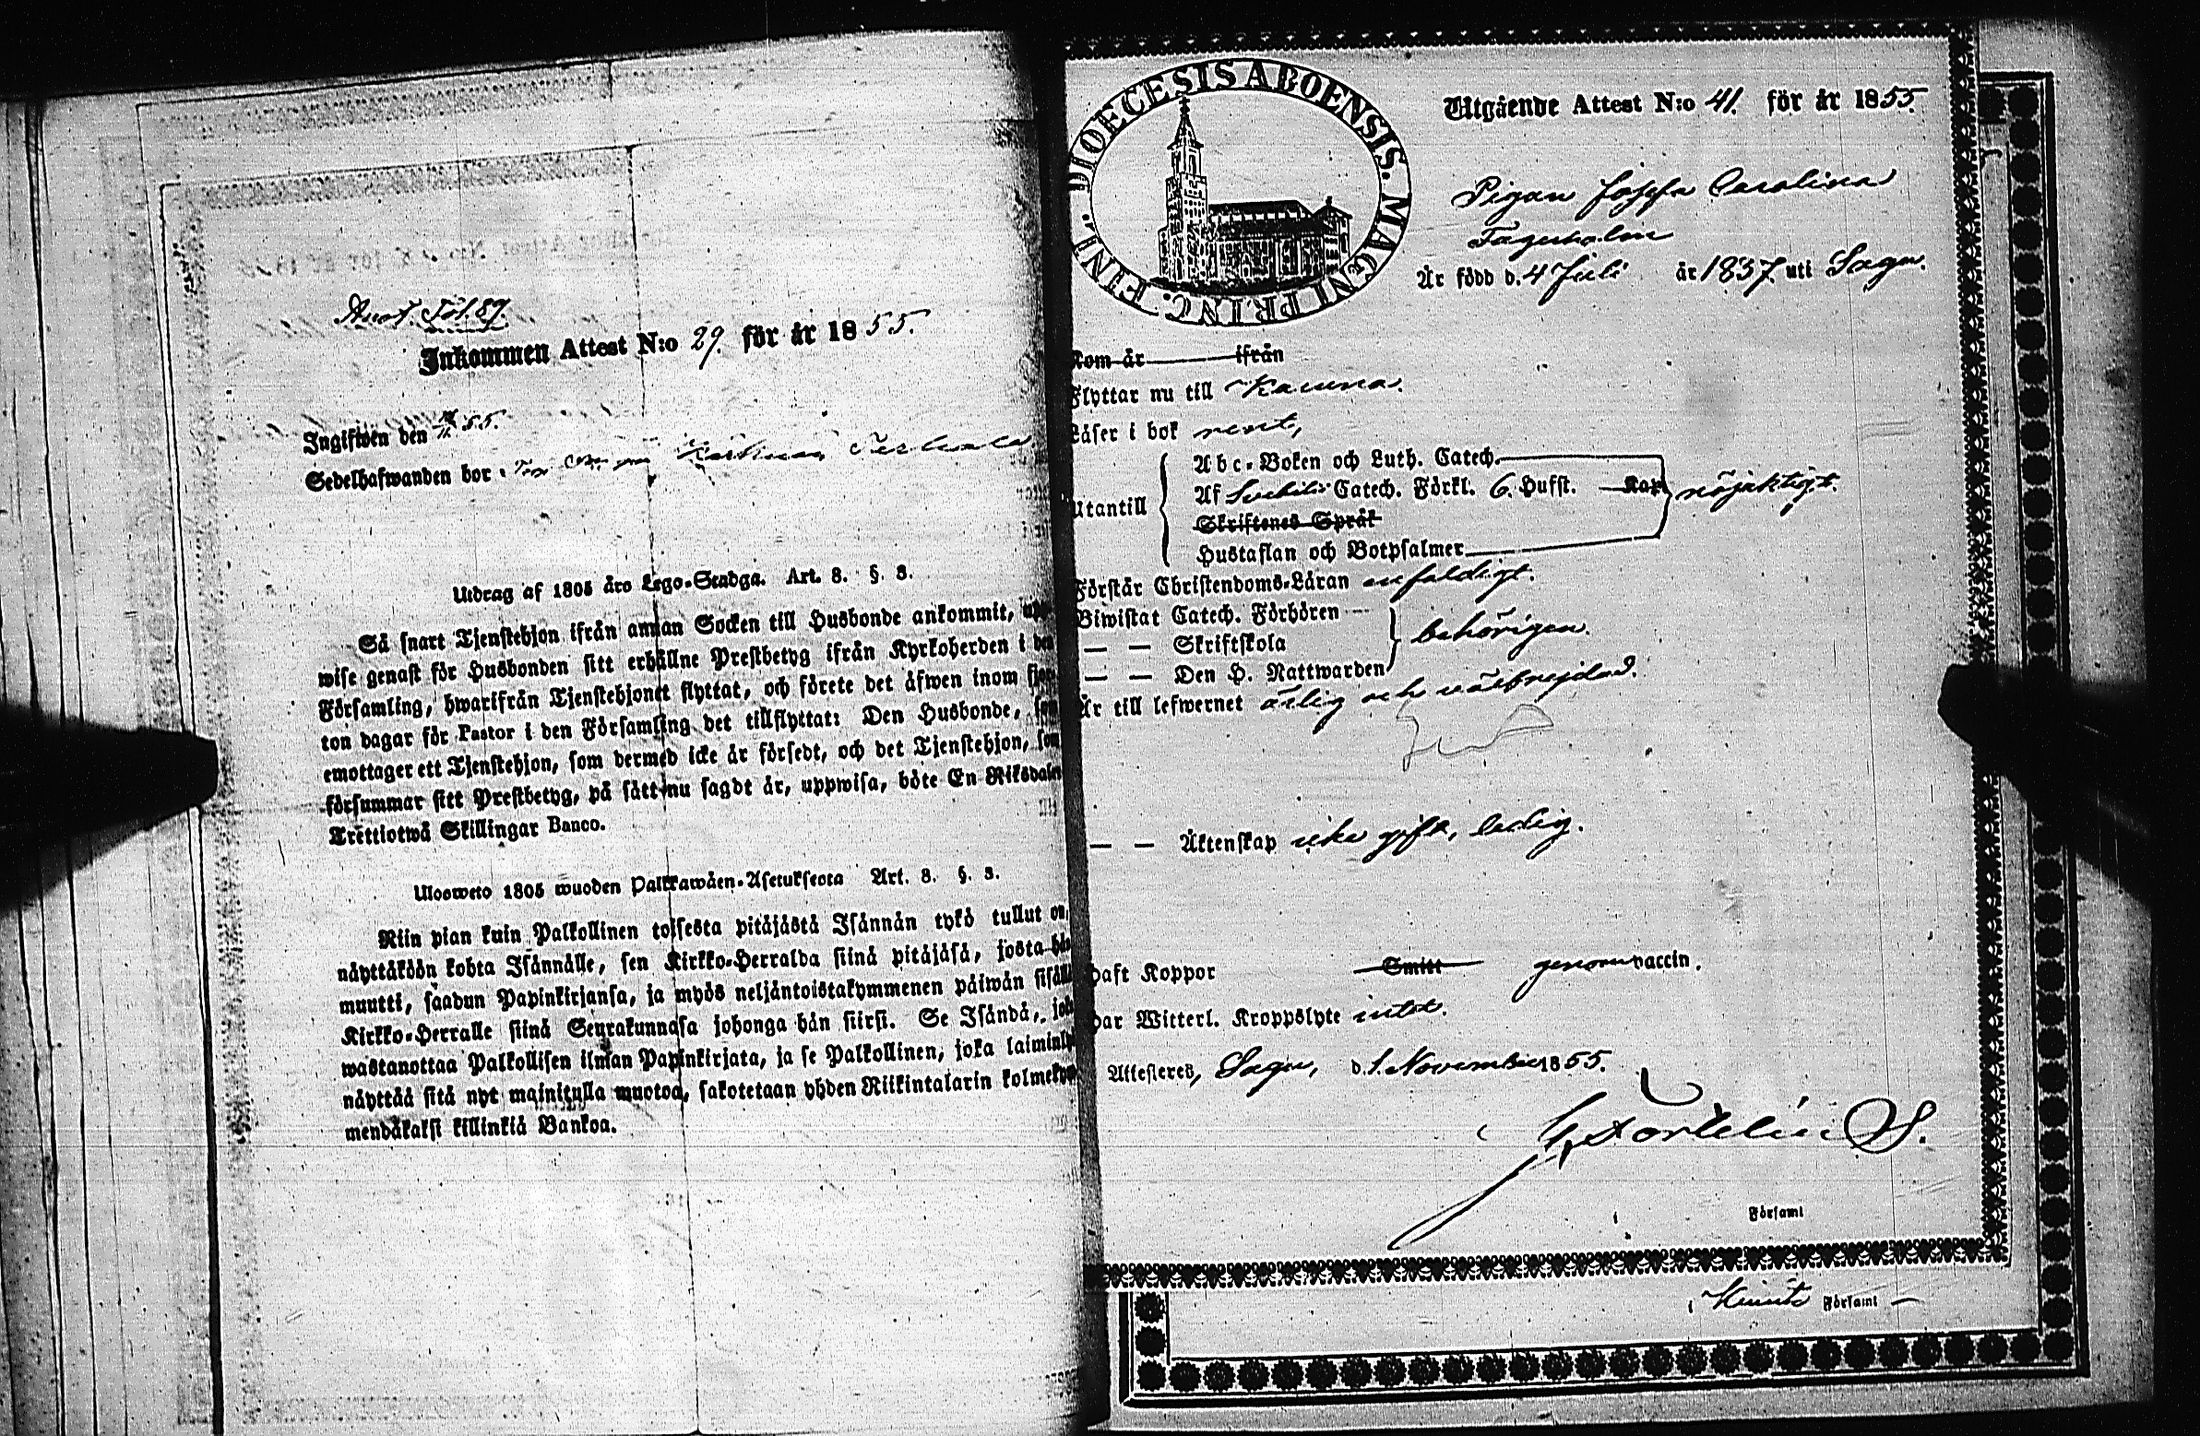 Anot. Fol. 89.
Inkommen Attest N:o 29. för år 1855.
Ingifwen den 55.
Sedelhafwanden bor
Utdrag af 1805 års Lego-Stadga. Art. 8. §. 3.
Så snart Tjenstehjon ifrån annan Socken till Husbonde ankommit, upp-
wise genast för Husbonden sitt erhållne Prestbetyg ifrån Kyrkoherden i den
Församling, hwarifrån Tjenstehjonet flyttat, och förete det äfwen inom fjor-
ton dagar för Pastor i den Församling det tillflyttat: Den Husbonde, som
emottager ett Tjenstehjon, som dermed icke är försedt, och det Tjenstehjon, som
försummar sitt Prestbetyg, på sätt nu sagdt är, uppwisa, böte En Riksdaler
Trettiotwå Skillingar Banco.
Ulosweto 1805 wuoden Palkkawäen-Asetuksesta Art. 8. §. 3.
Niin pian kuin Palkollinen toisesta pitäjästä Isännän tykö tullut on,
näyttäköön kohta Isännälle, sen Kirkko-Herralda siinä pitäjäsä, josta hän
muutti, saadun Papinkirjansa, ja myös neljäntoistakymmenen päiwän sisällä
Kirkko-Herralle siinä Seurakunnasa johonga hän siirsi. Se Isändä, joka
wastanottaa Palkollisen ilman Papinkirjata, ja se Palkollinen, joka laiminlyö
näyttää sitä nyt mainitulla muotoa, sakotetaan yhden Riikintalarin kolmekym-
mendäkaksi killinkiä Bankoa.
DIOECESIS ABOENSIS. MAGNI PRINC. FINL.
Utgående Attest N:o 41. för år 1855.
Pigan Josefa Carolina
Fagerholm
Är född d. 4 Juli år 1837 uti Sagu.
Kom år ifrån
Flyttar nu till Karuna.
Läser i bok rent,
Utantill
Abc-Boken och Luth. Catech.
Af Svebilii Catech. Förkl. 6. Hufst. Kap. nöjaktigt.
Skriftenes Språk
Hustaflan och Botpsalmer
Förstår Christendoms-Läran enfaldigt.
Biwistat Catech. Förhören
— — Skriftskola behörigen.
— — Den H. Nattwarden
Är till lefwernet ärlig och välfrejdad.
— — Äktenskap icke gift, ledig.
Haft Koppor Smitt genom vaccin.
Har Witterl. Kroppslyte intet.
Attesteres, Sagu, d. 1. November 1855.
Församl
i Kimito Församl